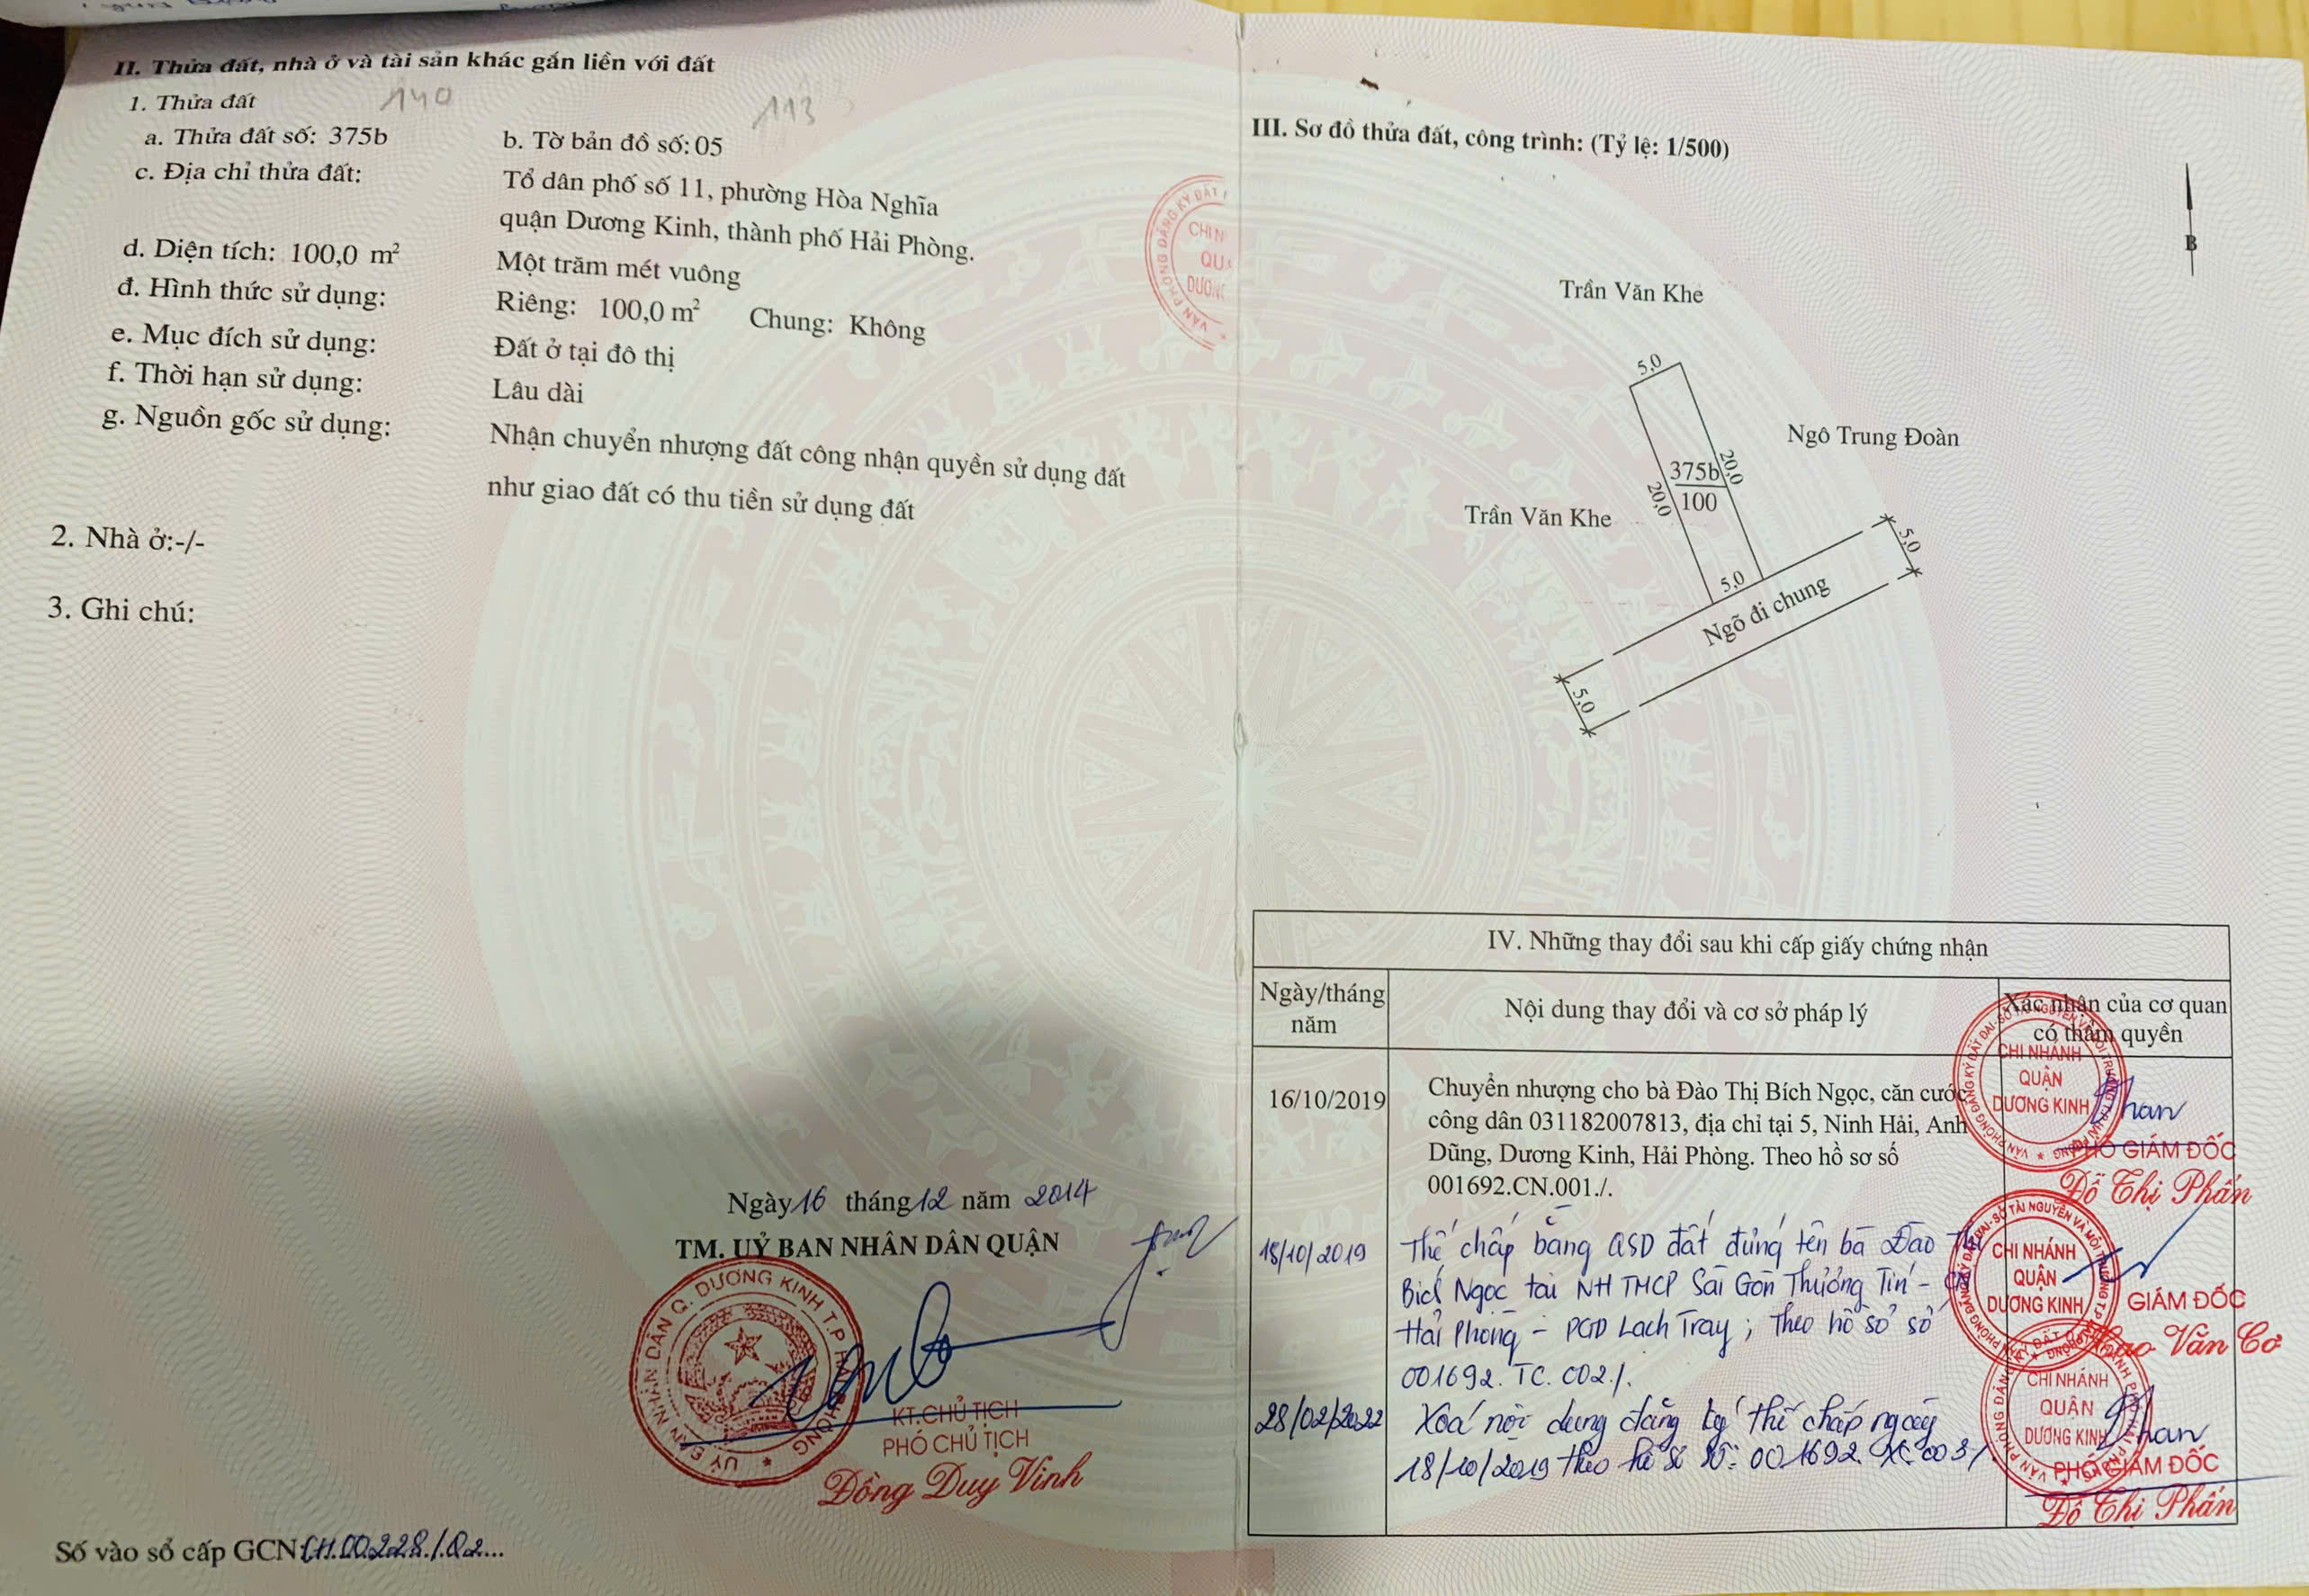 II. Thửa đất, nhà ở và tài sản khác gắn liền với đất
1. Thửa đất
140
113
a. Thửa đất số: 375b
b. Tờ bản đồ số: 05
c. Địa chỉ thửa đất:
Tổ dân phố số 11, phường Hòa Nghĩa
quận Dương Kinh, thành phố Hải Phòng.
d. Diện tích: 100,0 m²
Một trăm mét vuông
đ. Hình thức sử dụng:
Riêng: 100,0 m² Chung: Không
e. Mục đích sử dụng:
Đất ở tại đô thị
f. Thời hạn sử dụng:
Lâu dài
g. Nguồn gốc sử dụng:
Nhận chuyển nhượng đất công nhận quyền sử dụng đất
như giao đất có thu tiền sử dụng đất
2. Nhà ở:-/-
3. Ghi chú:
Ngày 16 tháng 12 năm 2014
TM. UỶ BAN NHÂN DÂN QUẬN
UỶ BAN NHÂN DÂN Q. DƯƠNG KINH T.P HẢI PHÒNG
KT.CHỦ TỊCH
PHÓ CHỦ TỊCH
Đồng Duy Vinh
Số vào sổ cấp GCN: CH.00228/Q2...
III. Sơ đồ thửa đất, công trình: (Tỷ lệ: 1/500)
VĂN PHÒNG ĐĂNG KÝ ĐẤT
B
Trần Văn Khe
5,0
Ngô Trung Đoàn
375b
100
20,0
20,0
Trần Văn Khe
5,0
5,0
Ngõ đi chung
5,0
IV. Những thay đổi sau khi cấp giấy chứng nhận
Ngày/tháng năm
Nội dung thay đổi và cơ sở pháp lý
Xác nhận của cơ quan có thẩm quyền
16/10/2019
Chuyển nhượng cho bà Đào Thị Bích Ngọc, căn cước
công dân 031182007813, địa chỉ tại 5, Ninh Hải, Anh
Dũng, Dương Kinh, Hải Phòng. Theo hồ sơ số
001692.CN.001./.
CHI NHÁNH
QUẬN
DƯƠNG KINH
PHÓ GIÁM ĐỐC
Đỗ Thị Phấn
18/10/2019
Thế chấp bằng QSD đất đứng tên bà Đào Thị
Bích Ngọc tại NH TMCP Sài Gòn Thương Tín - CN
Hải Phòng - PGD Lạch Tray; Theo hồ sơ số
001692.TC.002./.
CHI NHÁNH
QUẬN
DƯƠNG KINH
GIÁM ĐỐC
Văn Cơ
28/02/2022
Xoá nội dung đăng ký thế chấp ngày
18/10/2019 theo hồ sơ số: 001692.XC.003/.
CHI NHÁNH
QUẬN
DƯƠNG KINH
PHÓ GIÁM ĐỐC
Đỗ Thị Phấn